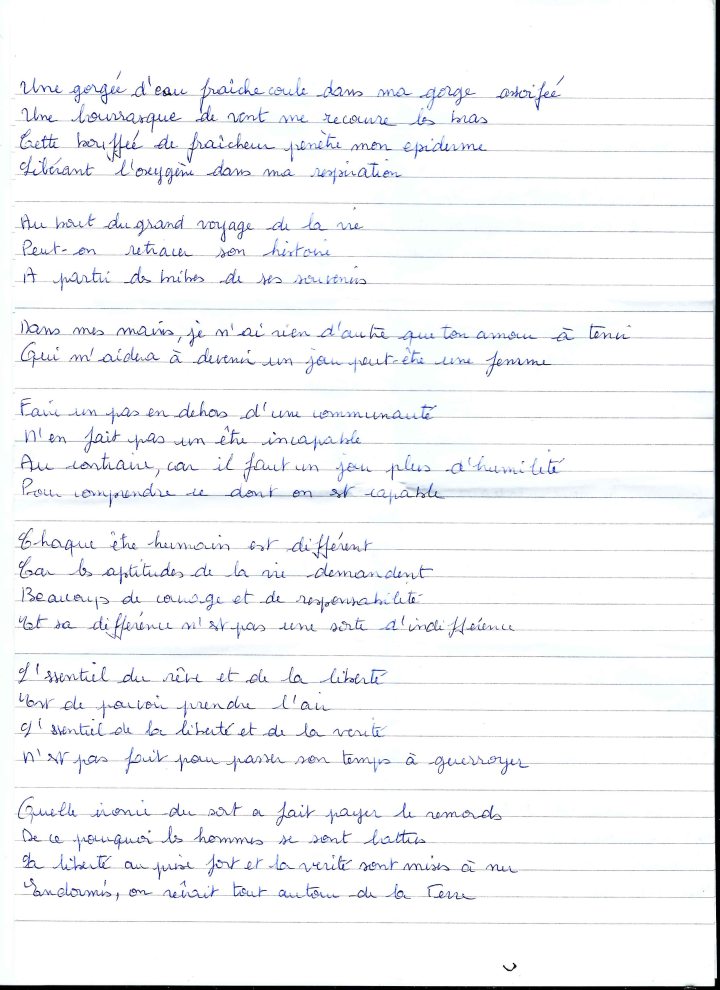 Une gorgée d'eau fraîche coule dans ma gorge assoifée
Une bourrasque de vent me recouvre les bras
Cette bouffée de fraîcheur penètre mon épiderme
Libérant l'oxygène dans ma respiration
Au bout du grand voyage de la vie
Peut-on retracer son histoire
A partir des bribes de ses souvenirs
Dans mes mains, je n'ai rien d'autre que ton amour à tenir
Qui m'aidera à devenir un jour peut-être une femme
Faire un pas en dehors d'une communauté
N'en fait pas un être incapable
Au contraire, car il faut un jour plus d'humilité
Pour comprendre ce dont on est capable
Chaque être humain est différent
Car les aptitudes de la vie demandent
Beaucoups de courage et de responsabilité
Et sa différence n'est pas une sorte d'indifférence
L'essentiel du rêve et de la liberté
Est de pouvoir prendre l'air
L'essentiel de la liberté et de la verité
N'est pas fait pour passer son temps à guerroyer
Quelle ironie du sort a fait payer le remords
De ce pourquoi les hommes se sont battus
La liberté au prise fort et la verité sont mises à nu
Endormis, on rêvait tout autour de la Terre